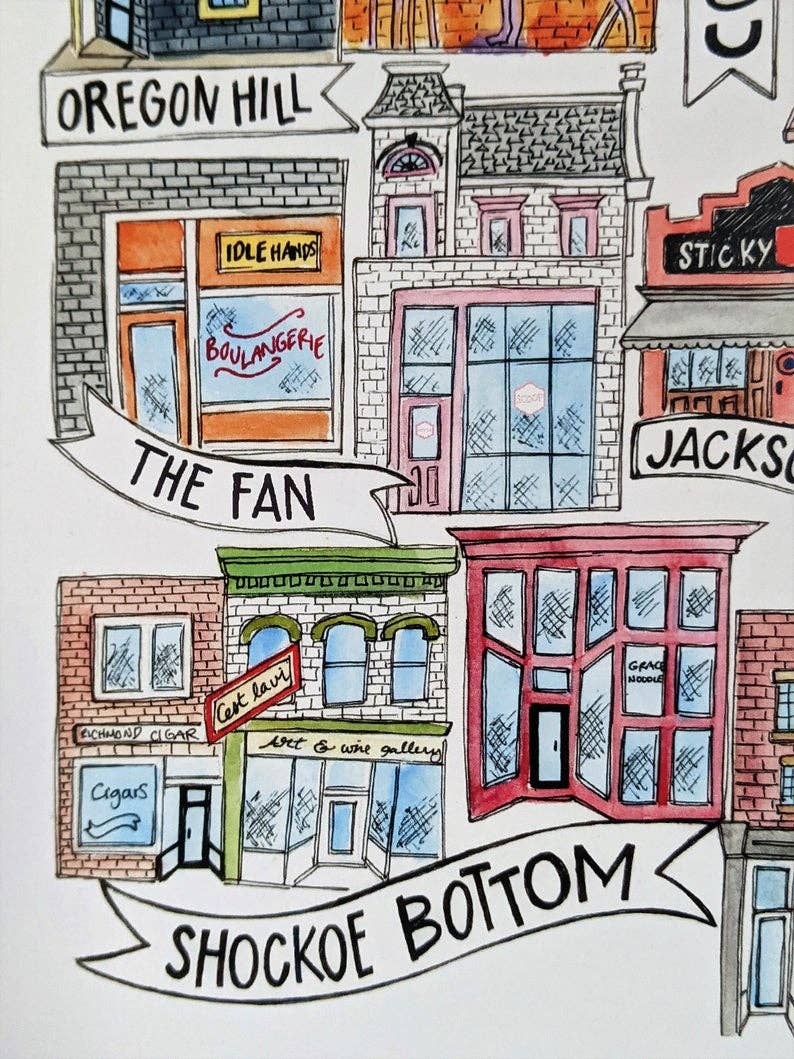 OREGON HILL
IDLE HANDS
BOULANGERIE
STICKY
SCOOP
THE FAN
JACKSO
C'est la vi
RICHMOND CIGAR
Art & wine gallery
Cigars
GRACE
NOODLE
SHOCKOE BOTTOM